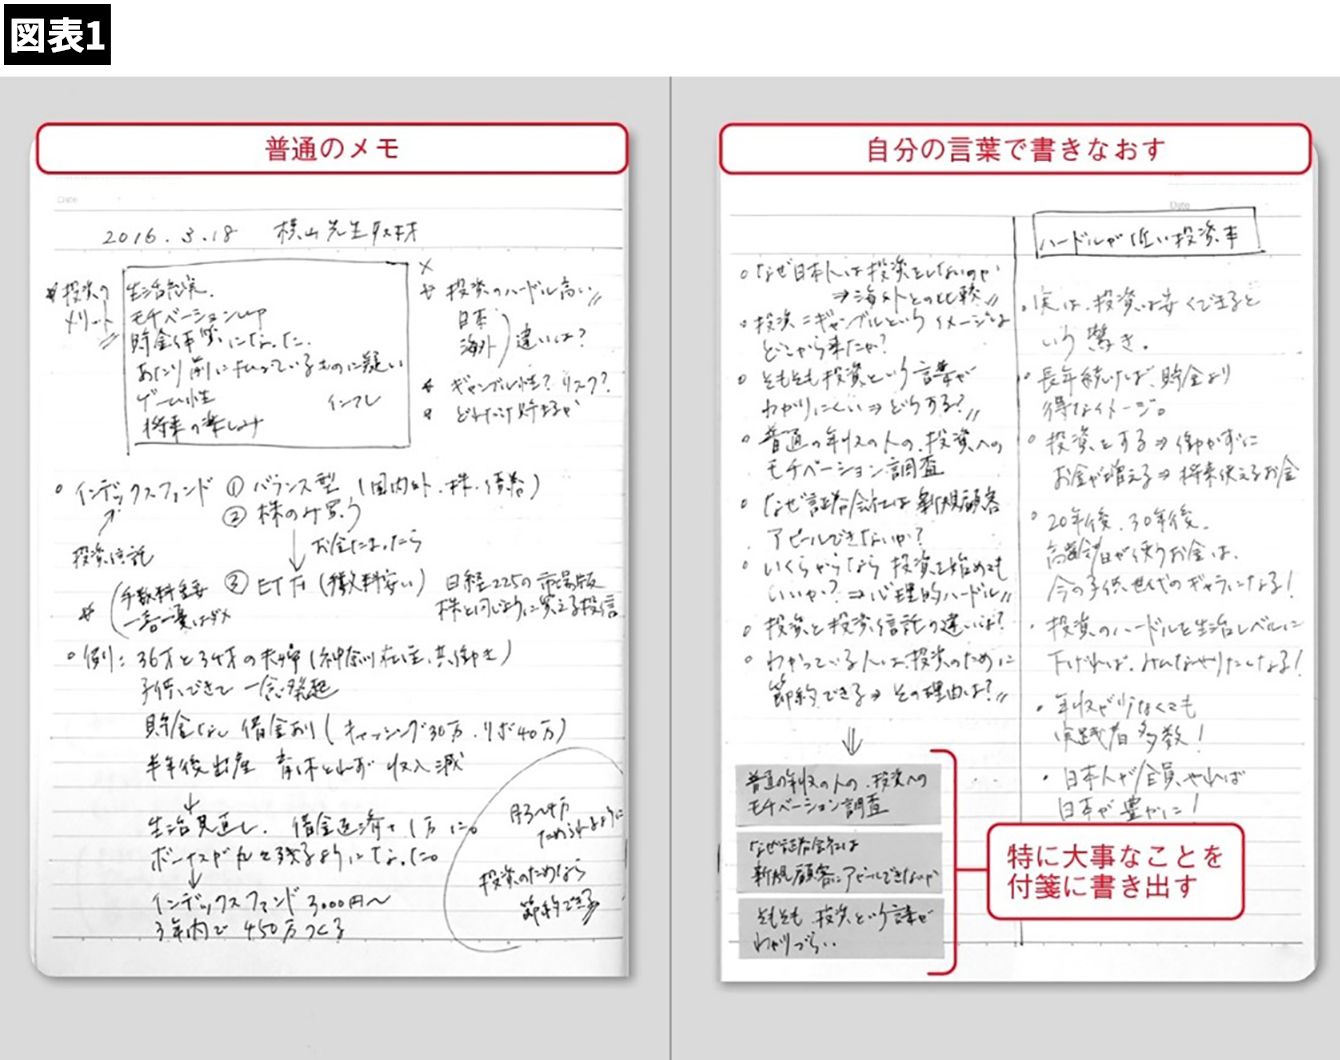 図表1
普通のメモ
Date
2016.3.18 横山先生取材
*投資の
メリット
生活充実.
モチベーションup
貯金体質になった.
あたり前に払っているものに疑い
ゲーム性 インフレ
将来の楽しみ
投資のハードル高い
日本
海外 違いは?
ギャンブル性? リスク?
どれだけ貯まるか
インデックスファンド ① バランス型 (国内外、株、債券)
② 株のみ買う
投資信託
お金たまったら
③ ETF (手数料安い)
日経225の市場版
株と同じように買える投信
手数料重要
一喜一憂はダメ
例: 36才と34才の夫婦(神奈川在住、共働き)
子供できて一念発起
貯金なし 借金あり(キャッシング30万、リボ40万)
半年後出産 育休とれず 収入減
生活見直し、借金返済+1万に。
ボーナスが丸々残るようになった。
インデックスファンド 3000円〜
3年内で 450万つくる
月3〜4万
ためられるように
投資のためなら
節約できる
自分の言葉で書きなおす
Date
なぜ日本人は投資をしないのか
⇒海外との比較
投資=ギャンブルというイメージは
どこから来たか?
そもそも投資という言葉が
わかりにくい⇒どうする?
普通の年収の人の、投資への
モチベーション調査
なぜ証券会社は新規顧客
アピールできないか?
いくらからなら投資を始めても
いいか?⇒心理的ハードル
投資と投資信託の違いは?
わかっている人は、投資のために
節約できる⇒その理由は?
普通の年収の人の、投資への
モチベーション調査
なぜ証券会社は
新規顧客にアピールできないか
そもそも、投資という言葉が
わかりづらい
ハードルが低い投資本
実は、投資は安くできると
いう驚き。
長年続ければ、貯金より
得なイメージ。
投資をする⇒働かずに
お金が増える⇒将来使えるお金
20年後、30年後、
高齢の自分が使うお金は、
今の子供世代のギャラになる!
投資のハードルを生活レベルに
下げれば、みんなやりたくなる!
年収が少なくても
実践者多数!
日本人が全員やれば
日本が豊かに!
特に大事なことを
付箋に書き出す